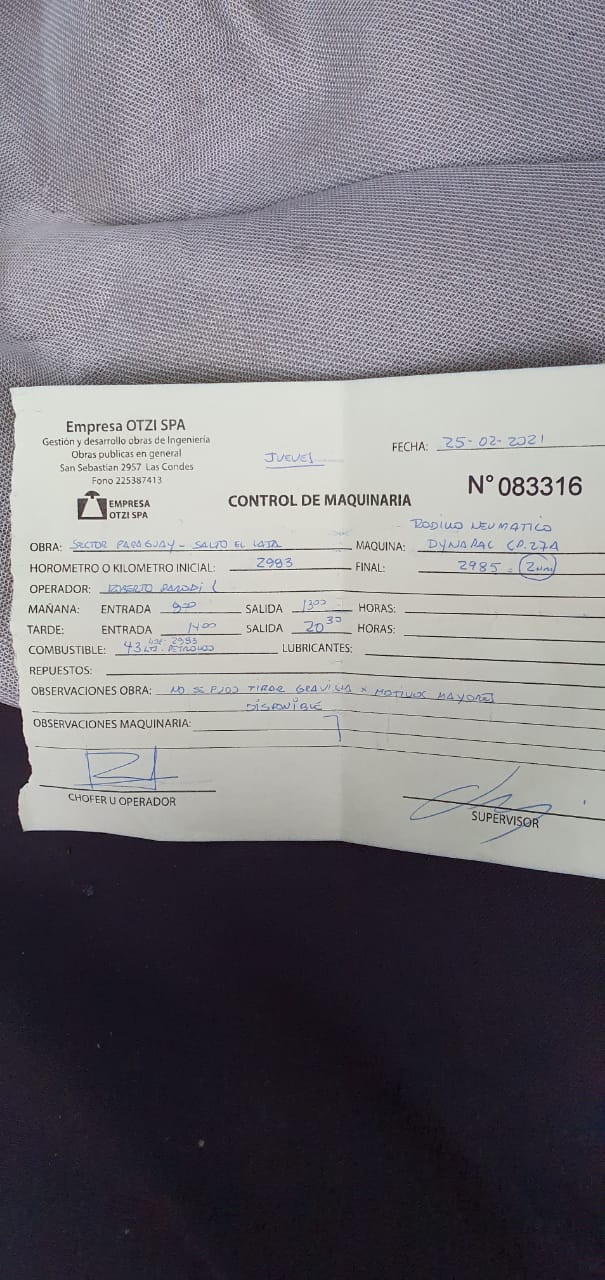 Empresa OTZI SPA
Gestión y desarrollo obras de Ingeniería
Obras publicas en general
San Sebastian 2957 Las Condes
Fono 225387413
EMPRESA
OTZI SPA
JUEVES
FECHA: 25-02-2021
CONTROL DE MAQUINARIA
N° 083316
RODILLO NEUMATICO
OBRA: SECTOR PARAGUAY - SALTO EL LAJA
MAQUINA: DYNAPAC CP.274
HOROMETRO O KILOMETRO INICIAL: 2983
FINAL: 2985.
OPERADOR: ROBERTO PARODI
MAÑANA: ENTRADA 800 SALIDA 1300 HORAS:
TARDE: ENTRADA 1400 SALIDA 2030 HORAS:
COMBUSTIBLE: 43 LTS. PETROLEO LUBRICANTES:
REPUESTOS:
OBSERVACIONES OBRA: NO SE PUDO TIRAR GRAVILLA X MOTIVOS MAYORES
DISPONIBLE
OBSERVACIONES MAQUINARIA:
CHOFER U OPERADOR
SUPERVISOR